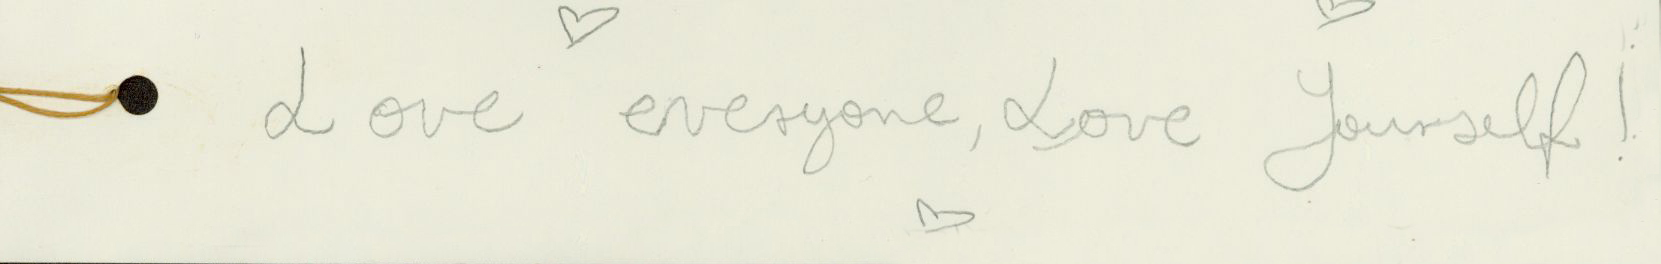 Love everyone, Love Yourself!